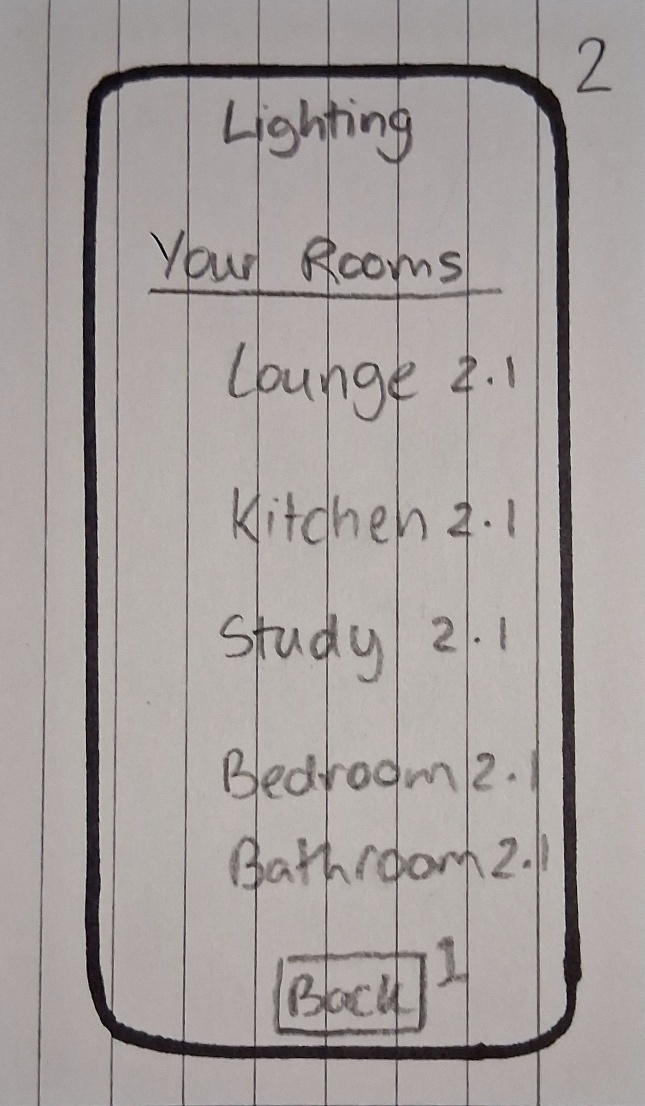 2
Lighting
Your Rooms
Lounge 2.1
Kitchen 2.1
Study 2.1
Bedroom 2.1
Bathroom 2.1
Back 1